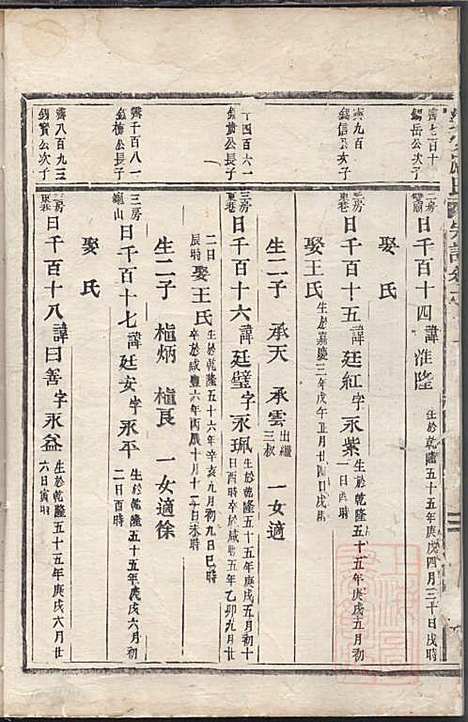 氏宗譜卷
齊七百十
錫岳公次子
三房
日千百十四諱淮隆
生於乾隆五十五年庚戌四月三十日戌時
娶氏
齊九百
錫信公次子
三房
東巷
日千百十五諱廷紅字永紫
生於乾隆五十五年庚戌五月初
一日酉時
娶王氏
生於嘉慶三年戊午五月廿四日戌時
生二子 承天 承雲
出繼
三叔
一女適
千四百六一
錫黄公長子
三房
東巷
日千百十六諱廷璧字永珮
生於乾隆五十五年庚戌五月初十
日酉時卒於咸豐五年乙卯九月廿
二日
辰時
娶王氏
生於乾隆五十六年辛亥九月初九日巳時
卒於咸豐六年丙辰十月十二日未時
生二子 植炳 植良 一女適徐
齊千百八一
錫梅公長子
三房
龜山
日千百十七諱廷安字永平
生於乾隆五十五年庚戌六月初
二日酉時
娶氏
齊八百九三
錫寶公次子
三房
東巷
日千百十八諱曰善字永益
生於乾隆五十五年庚戌六月廿
六日寅時